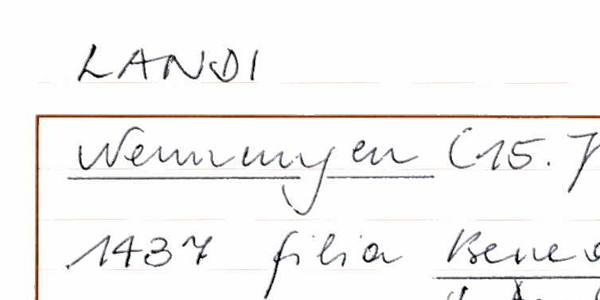 LANDI
Wennungen (15. J
1437 filia Bene